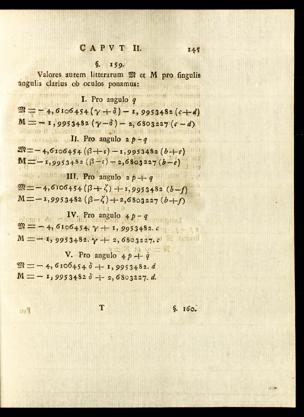 CAPVT II. 145
§. 159.
Valores autem litterarum 𝔐 et M pro singulis
angulis clarius ob oculos ponamus:
I. Pro angulo q
𝔐 = - 4,6106454 (γ + δ) - 1,9953482 (c + d)
M = - 1,9953482 (γ - δ) - 2,6803227 (c - d)
II. Pro angulo 2 p - q
𝔐 = - 4,6106454 (β + ε) - 1,9953482 (b + e)
M = - 1,9953482 (β - ε) - 2,6803227 (b - e)
III. Pro angulo 2 p + q
𝔐 = - 4,6106454 (β + ζ) + 1,9953482 (b - f)
M = - 1,9953482 (β - ζ) + 2,6803227 (b + f)
IV. Pro angulo 4 p - q
𝔐 = - 4,6106454. γ + 1,9953482. c
M = - 1,9953482. γ + 2,6803227. c
V. Pro angulo 4 p + q
𝔐 = - 4,6106454 δ + 1,9953482. d
M = - 1,9953482 δ + 2,6803227. d.
T §. 160.